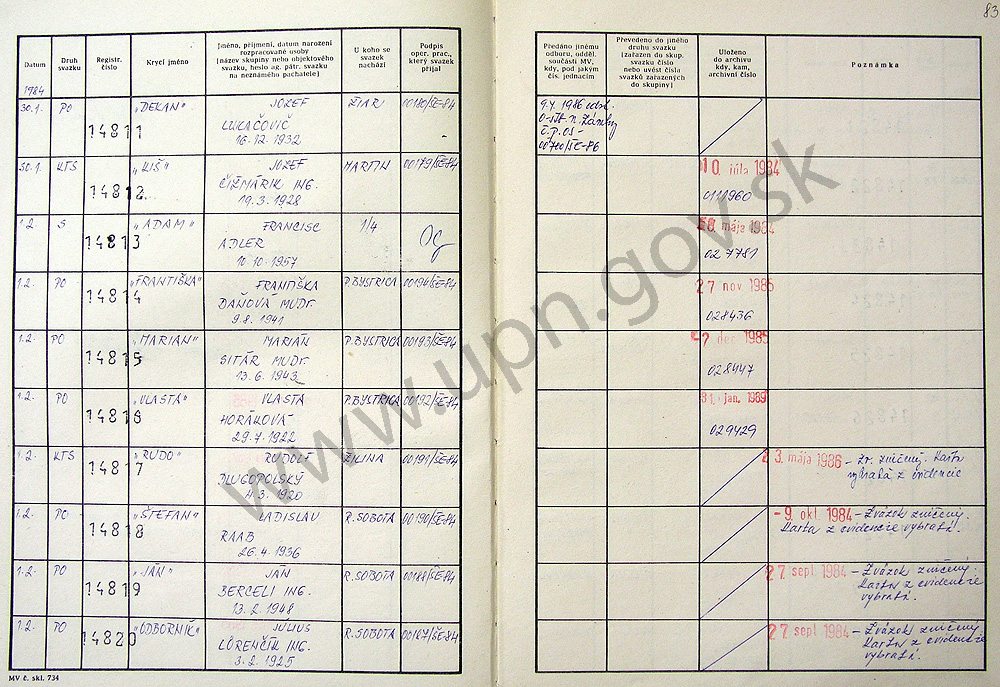 83
Datum
Druh svazku
Registr. číslo
Krycí jméno
Jméno, příjmení, datum narození rozpracované osoby
(název skupiny nebo objektového svazku, heslo ag. pátr. svazku na neznámého pachatele)
U koho se svazek nachází
Podpis oper. prac., který svazek přijal
Předáno jinému odboru, odděl. součásti MV, kdy, pod jakým čís. jednacím
Převedeno do jiného druhu svazku
(zařazen do skup. svazku číslo nebo uvést čísla svazků zařazených do skupiny)
Uloženo do archivu kdy, kam, archivní číslo
Poznámka
1984
30.1. PO 14811 „DEKAN" JOZEF ŽIAR 00180/ŠE-84
LUKAČOVIČ
16.12.1932
9.4. 1986 odst.
30.1. KTS 14812 „KIŠ" JOZEF MARTIN 00179/ŠE-84
ČIŽMÁRIK ING.
19.3.1928
10 júla 1984
0111960
1.2. S 14813 „ADAM" FRANCISC 1/4
ADLER
10.10.1957
mája 1984
027781
1.2. PO 14814 „FRANTIŠKA" FRANTIŠKA P.BYSTRICA 00194/ŠE-84
DAŇOVÁ MUDr.
9.8.1941
27 nov 1985
028436
1.2. PO 14815 „MARIAN" MARIÁN P.BYSTRICA 00193/ŠE-84
SITÁR MUDr.
13.6.1943
1985
028447
1.2. PO 14816 „VLASTA" VLASTA P.BYSTRICA 00192/ŠE-84
HORÁKOVÁ
29.7.1922
31. jan. 1989
029429
1.2. KTS 14817 „RUDO" RUDOLF ŽILINA 00191/ŠE-84
DLUGOPOLSKÝ
4.3.1920
23. mája 1986 – Zv. zničený. Karta
vybratá z evidencie
1.2. PO 14818 „ŠTEFAN" LADISLAV R.SOBOTA 00190/ŠE-84
RAAB
26.4.1936
-9. okt. 1984 – Zväzok zničený.
Karta z evidencie vybratá.
1.2. PO 14819 „JÁN" JÁN R.SOBOTA 00188/ŠE-84
BERCELI ING.
13.2.1948
27 sept 1984 – Zväzok zničený.
Karta z evidencie
vybratá.
1.2. PO 14820 „ODBORNÍK" JULIUS R.SOBOTA 00187/ŠE-84
LÖRENČÍK ING.
3.2.1925
27 sept 1984 – Zväzok zničený
Karta z evidencie
vybratá.
MV č. skl. 734
www.upn.gov.sk